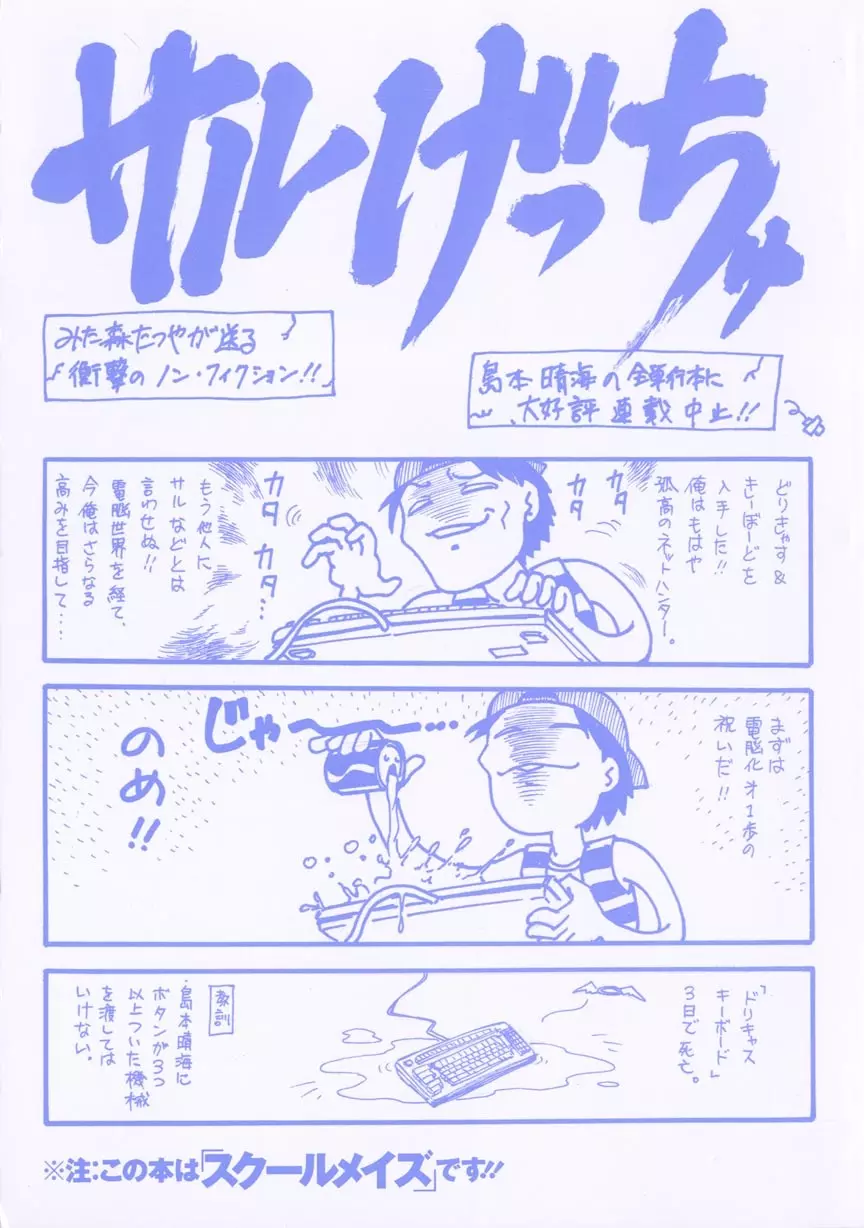 サルげっちゅ
みた森たつやが送る
衝撃のノン・フィクション!!
島本晴海の全単行本に
大好評連載中止!!
どりきゃす&
きーぼーどを
入手した!!
俺はもはや
孤高のネットハンター。
カタカタ
カタカタ…
もう他人に
サルなどとは
言わせぬ!!
電脳世界を経て、
今俺はさらなる
高みを目指して‥‥
まずは
電脳化オ1歩の
祝いだ!!
じゃ〜〜…
のめ!!
「ドリキャス
キーボード」
3日で死亡。
教訓
・島本晴海に
ボタンが3つ
以上ついた機械
を渡しては
いけない。
※注:この本は「スクールメイズ」です!!